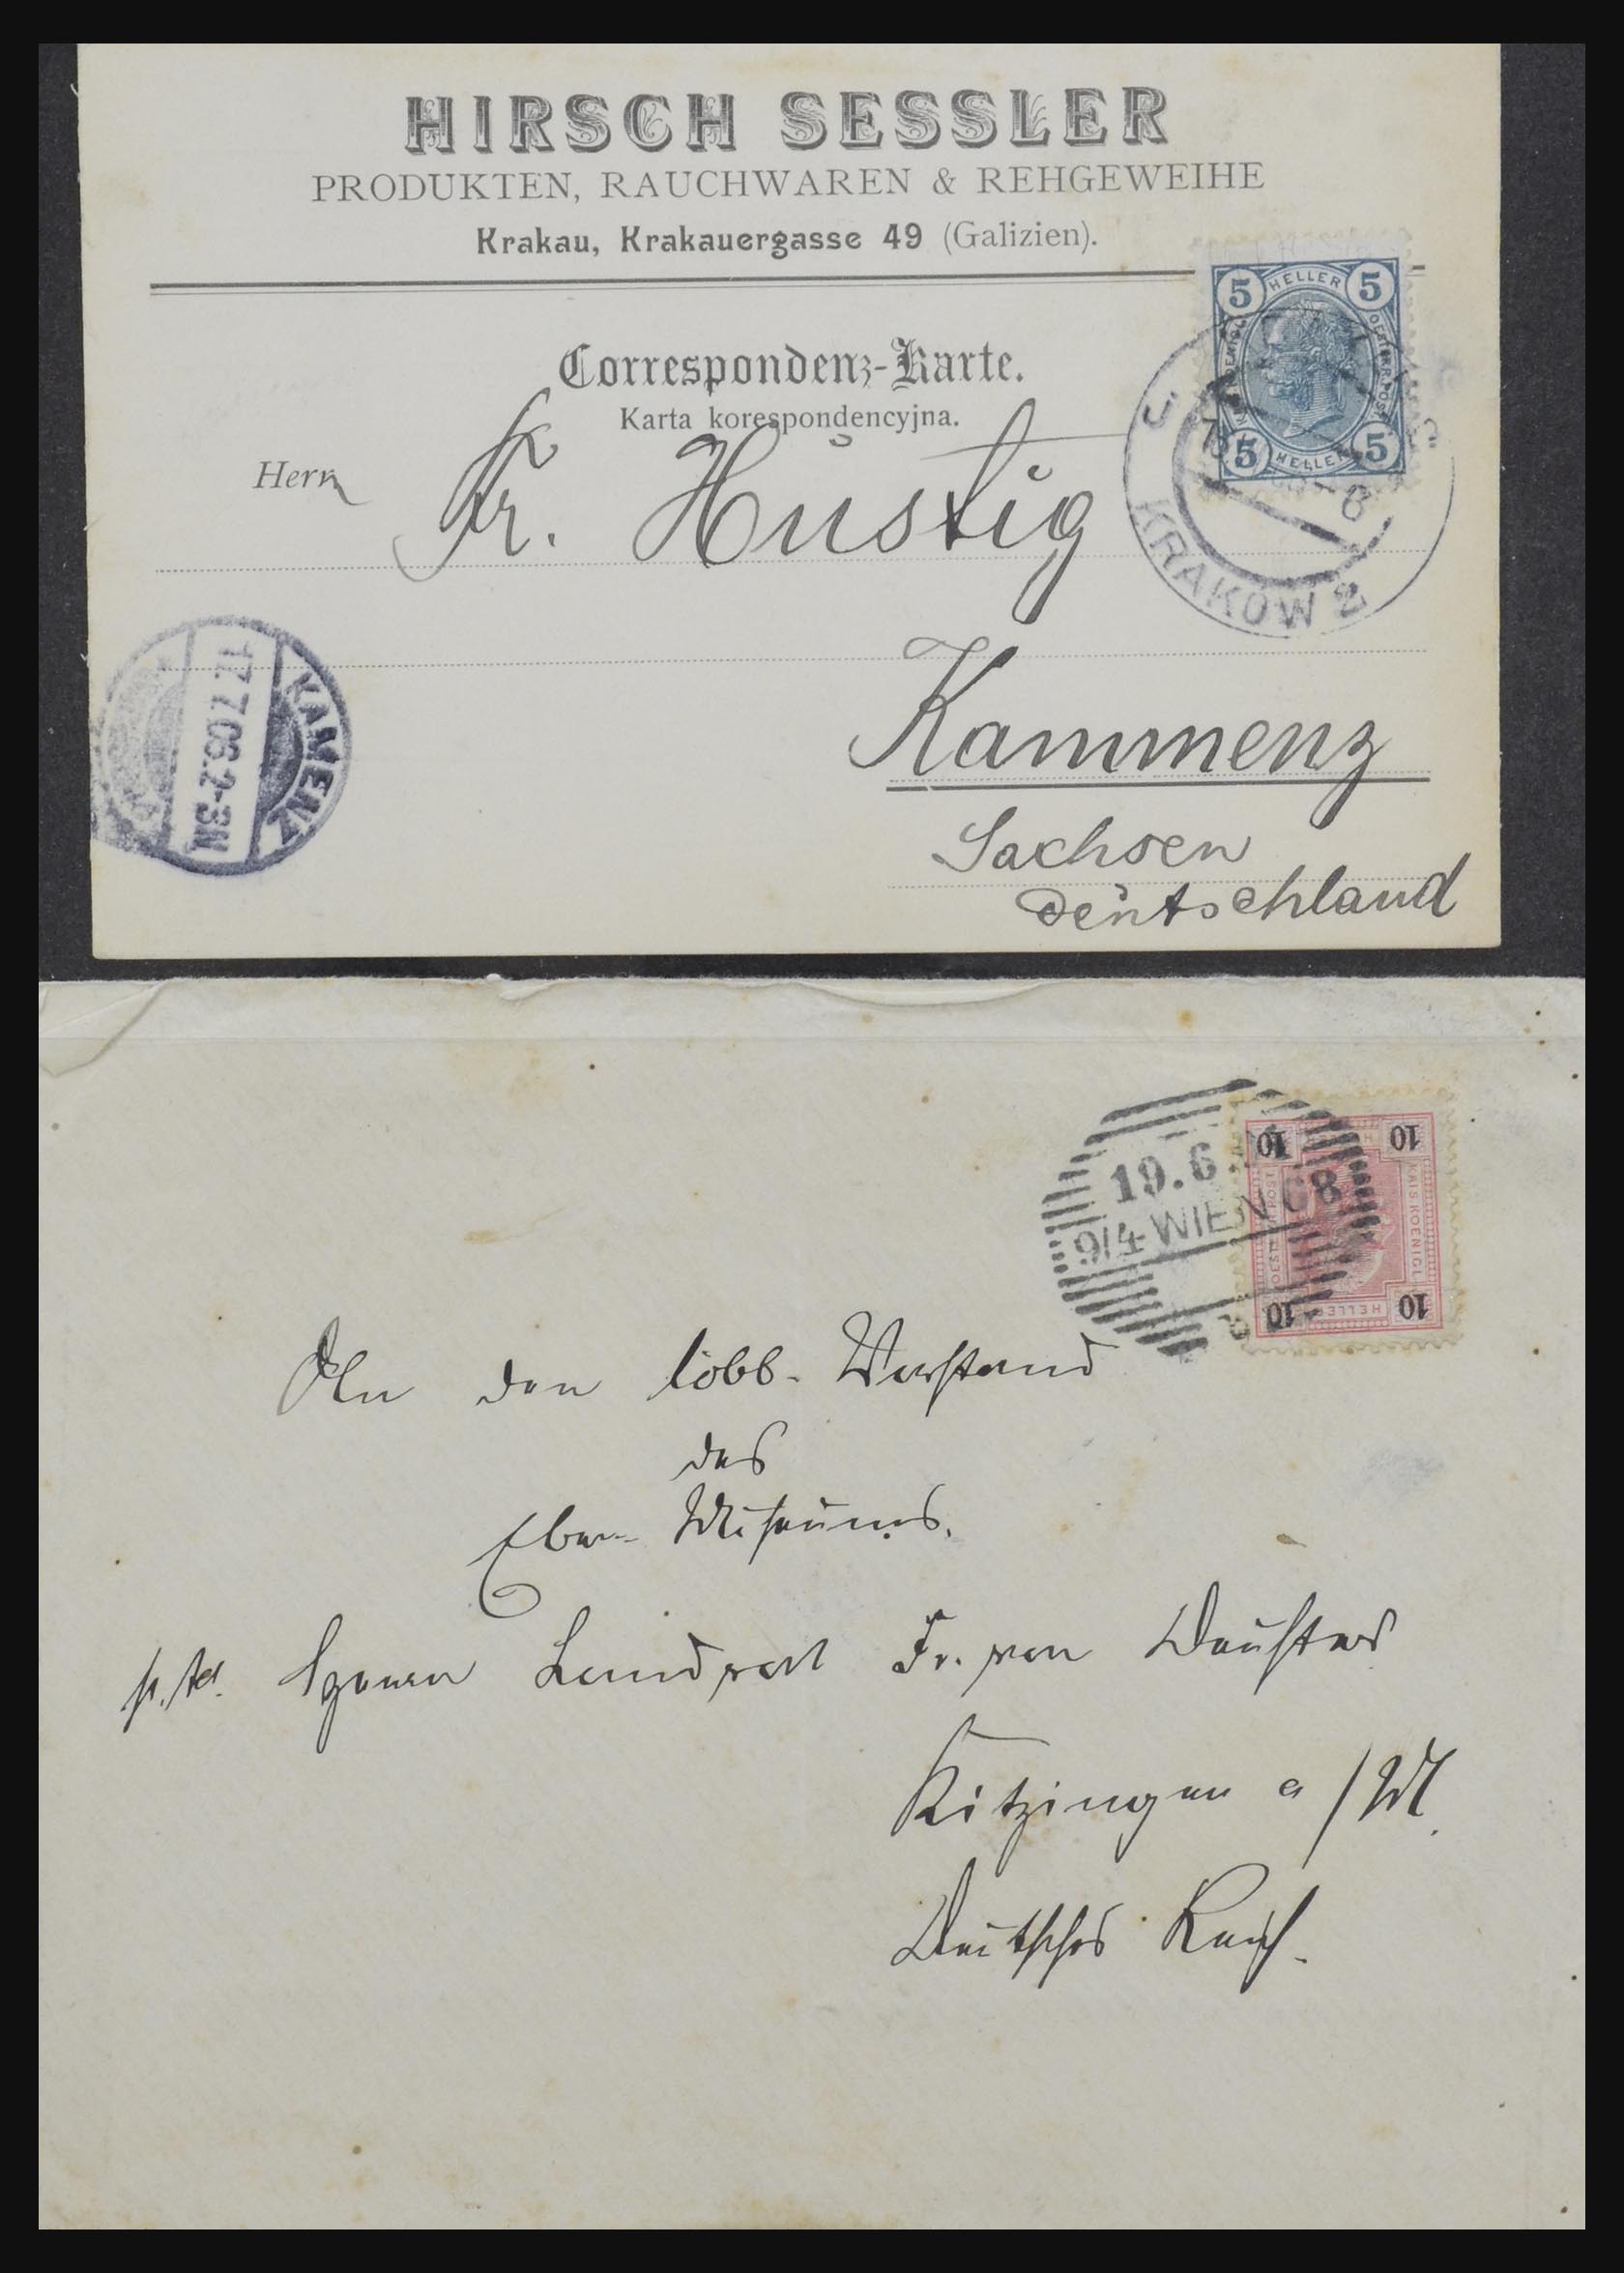 HIRSCH SESSLER
PRODUKTEN, RAUCHWAREN & REHGEWEIHE
Krakau, Krakauergasse 49 (Galizien).
5 HELLER 5
5 HELLER 5
Correspondenz-Karte.
Karta korespondencyjna.
Herrn
Fr. Hustig
KRAKOW 2
Kammenz
KAMENZ
17.7.06.2-3N
Sachsen
Deutschland
10 10
KAIS KOENIGL
HELLER
10 10
19.6
9/4 WIEN 68
An den löbl. Vorstand
des
Museums.
Herrn Landrat Fr. von Deuster
Kitzingen a/M.
Deutsches Reich.